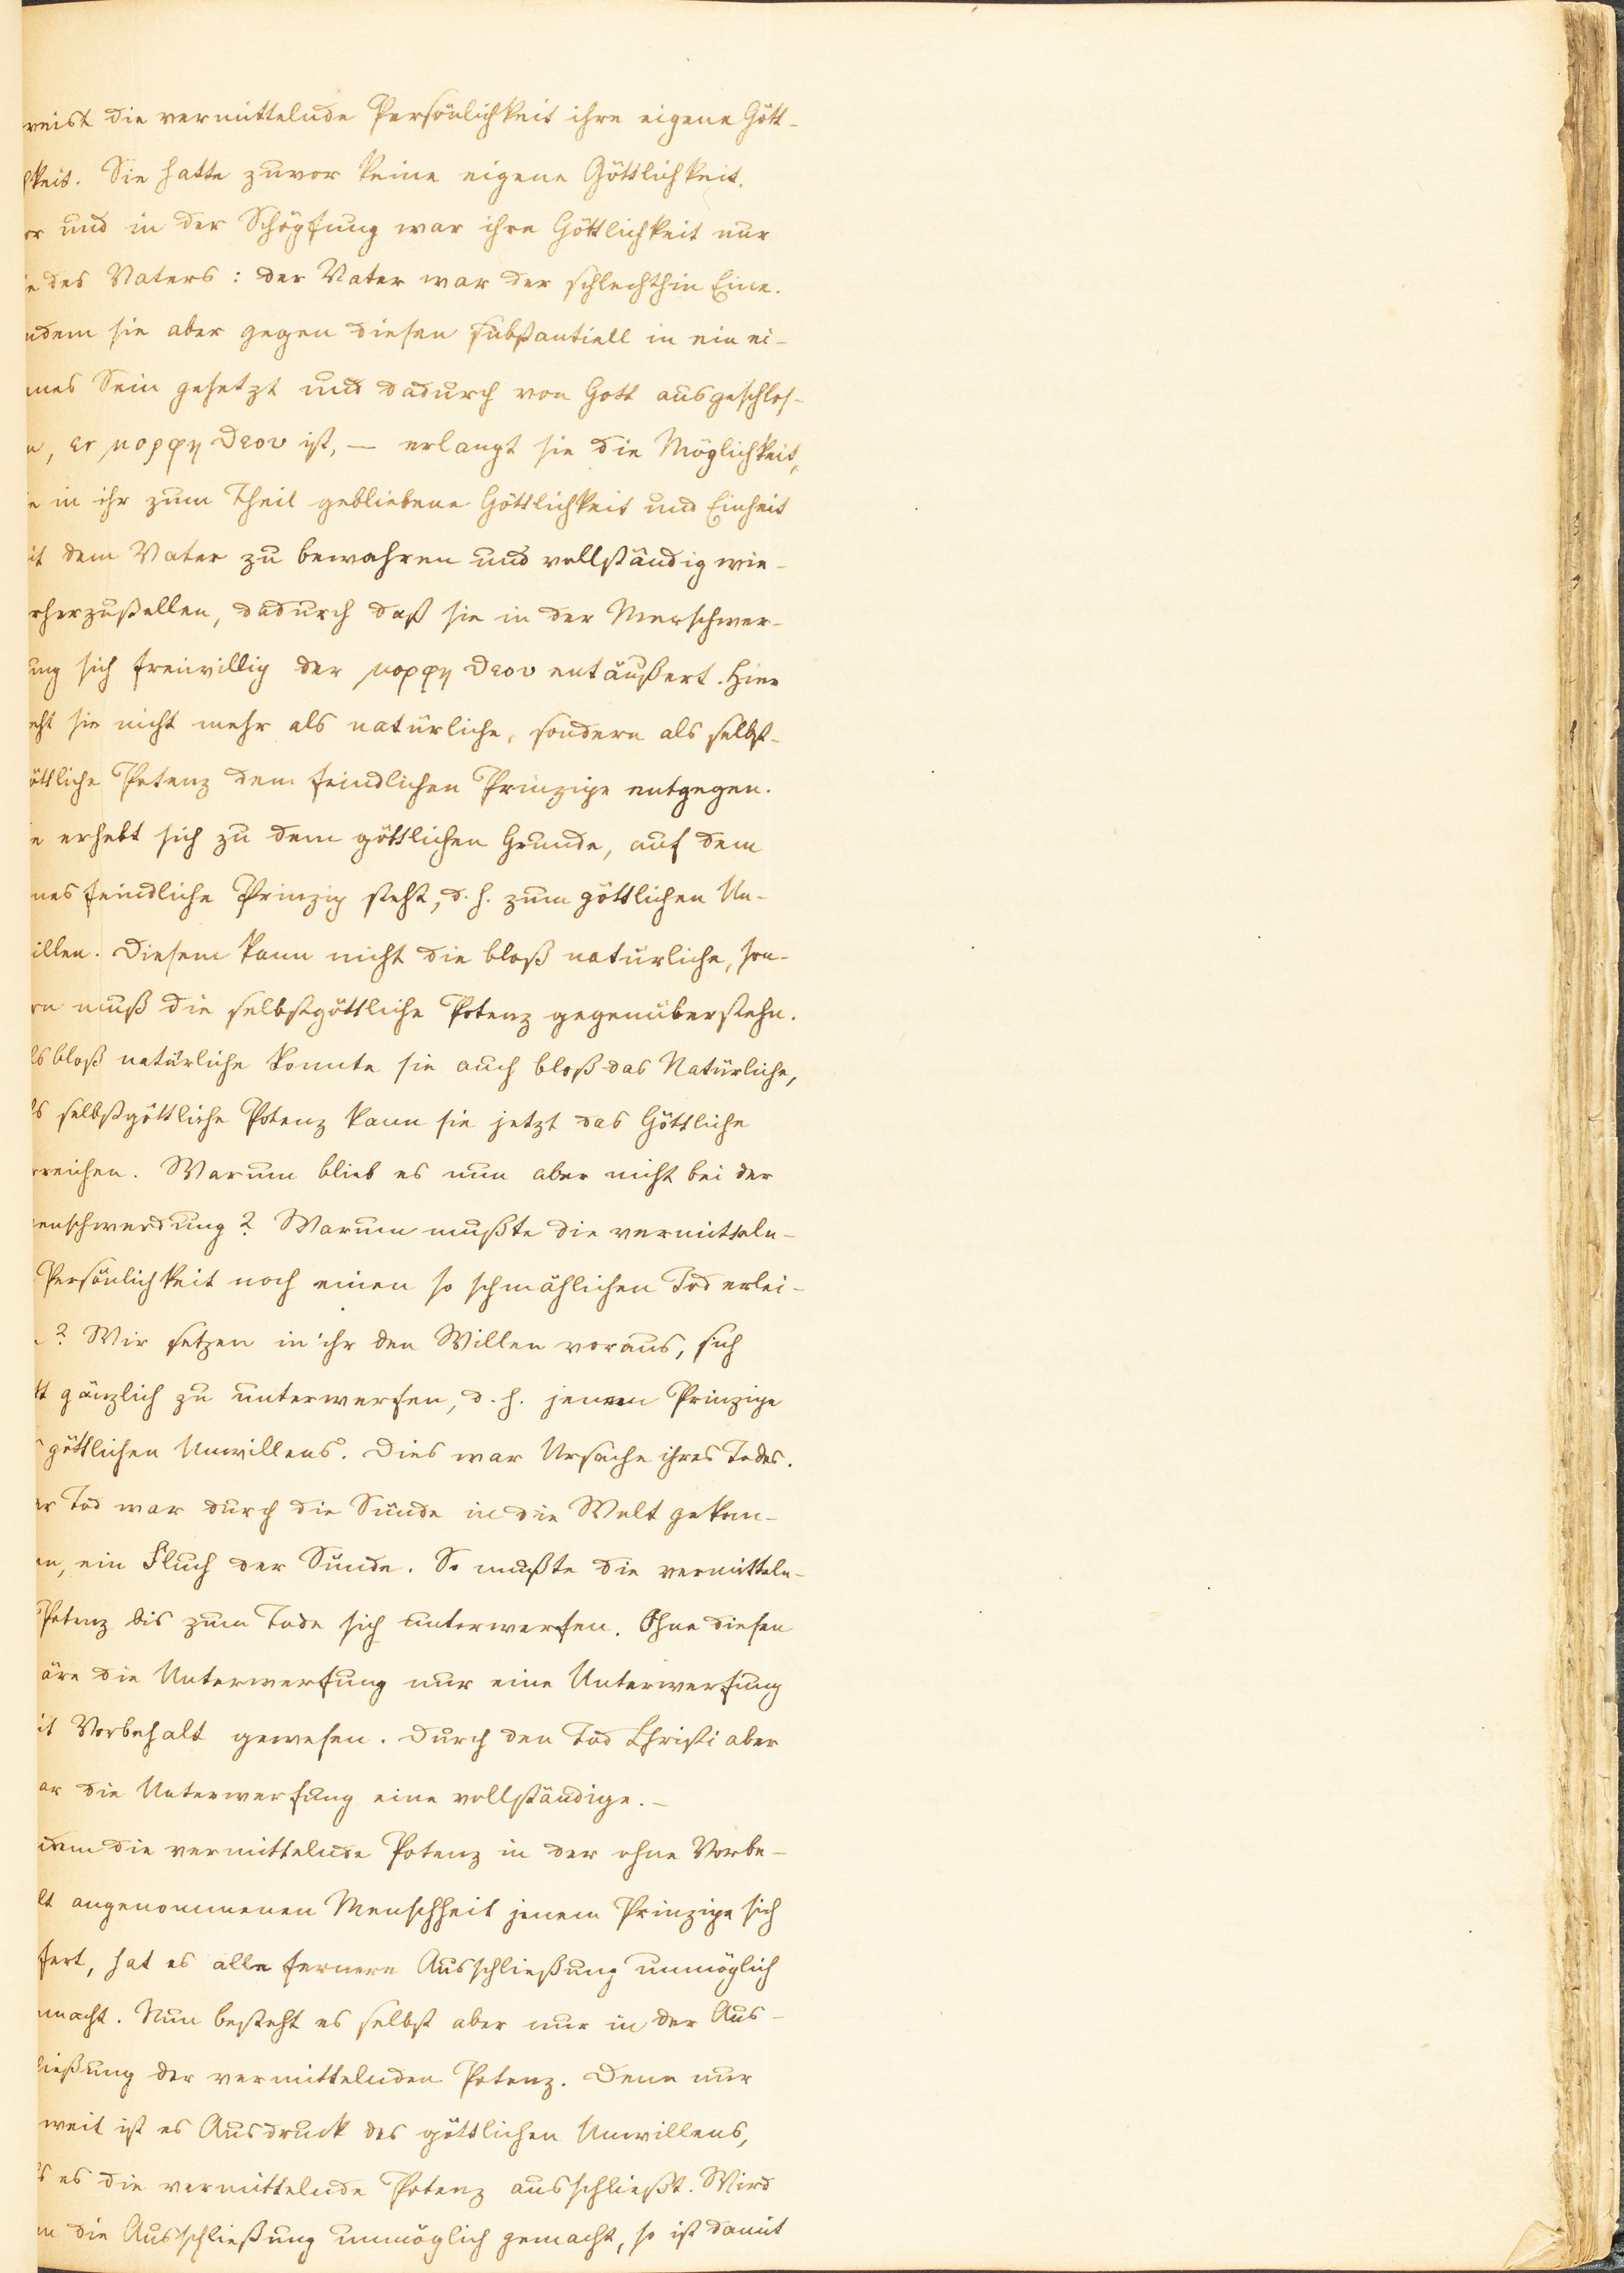 weist die vermittelnde Persönlichkeit ihre eigene Gött-
hkeit. Sie hatte zuvor keine eigene Göttlichkeit.
or und in der Schöpfung war ihre Göttlichkeit nur
ie des Vaters: der Vater war der schlechthin Eine.
ndem sie aber gegen diesen substantiell in ein ei-
nes Sein gesetzt und dadurch von Gott ausgeschlos-
n, εν μορφη θεου ist, — erlangt sie die Möglichkeit,
ie in ihr zum Theil gebliebene Göttlichkeit und Einheit
it dem Vater zu bewahren und vollständig wie-
rherzustellen, dadurch daß sie in der Menschwer-
ung sich freiwillig der μορφη θεου entäußert. Hier
eht sie nicht mehr als natürliche, sondern als selbst-
öttliche Potenz dem feindlichen Prinzipe entgegen.
ie erhebt sich zu dem göttlichen Grunde, auf dem
nes feindliche Prinzip steht, d. h. zum göttlichen Un-
illen. Diesem kann nicht die bloß natürliche, son-
rn muß die selbstgöttliche Potenz gegenüberstehn.
ls bloß natürliche konnte sie auch bloß das Natürliche,
ls selbstgöttliche Potenz kann sie jetzt das Göttliche
rreichen. Warum blieb es nun aber nicht bei der
enschwerdung? Warum mußte die vermitteln-
Persönlichkeit noch einen so schmählichen Tod erlei-
n? Wir setzen in ihr den Willen voraus, sich
tt gänzlich zu unterwerfen, d. h. jenem Prinzipe
s göttlichen Unwillens. Dies war Ursache ihres Todes.
er Tod war durch die Sünde in die Welt gekom-
en, ein Fluch der Sünde. So mußte die vermitteln-
Potenz bis zum Tode sich unterwerfen. Ohne diesen
äre die Unterwerfung nur eine Unterwerfung
it Vorbehalt gewesen. Durch den Tod Christi aber
ar die Unterwerfung eine vollständige. —
dem die vermittelnde Potenz in der ohne Vorbe-
lt angenommenen Menschheit jenem Prinzipe sich
fert, hat es alle fernere Ausschließung unmöglich
macht. Nun besteht es selbst aber nur in der Aus-
ließung der vermittelnden Potenz. Denn nur
weit ist es Ausdruck des göttlichen Unwillens,
ls es die vermittelnde Potenz ausschließt. Wird
m die Ausschließung unmöglich gemacht, so ist damit